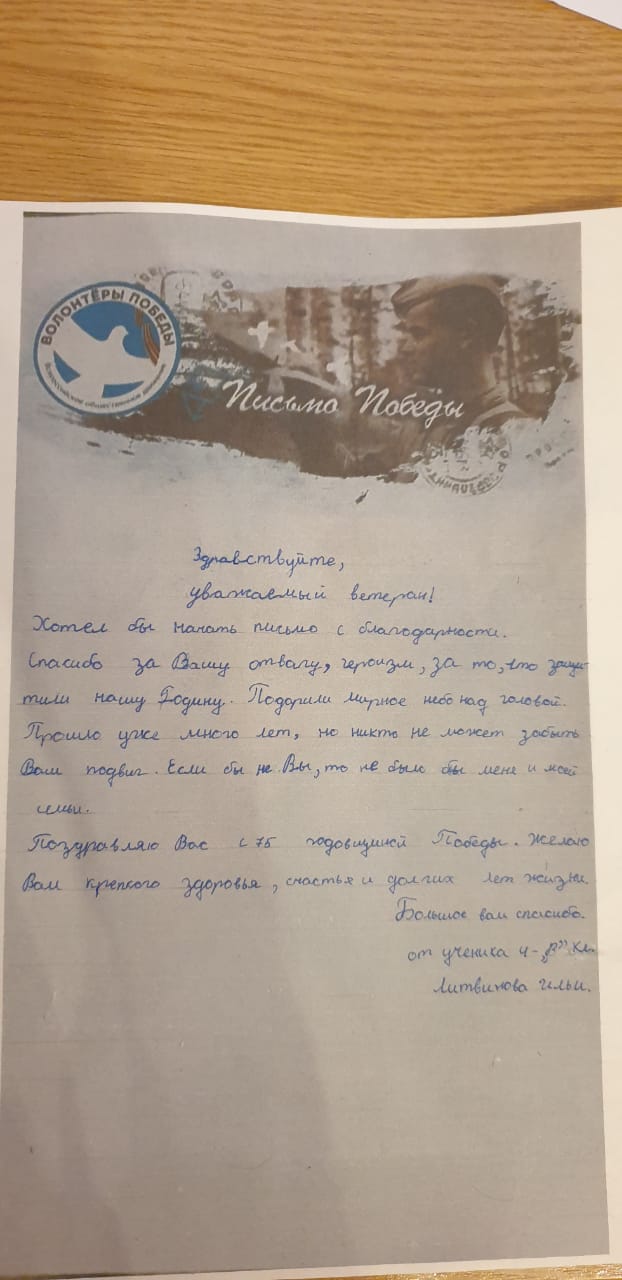 ВОЛОНТЁРЫ ПОБЕДЫ
Всероссийское общественное движение
Письмо Победы
Здравствуйте,
уважаемый ветеран!
Хотел бы начать письмо с благодарности.
Спасибо за Вашу отвагу, героизм, за то, что защи
тили нашу Родину. Подарили мирное небо над головой.
Прошло уже много лет, но никто не может забыть
Вам подвиг. Если бы не Вы, то не было бы меня и моей
семьи.
Поздравляю Вас с 75 годовщиной Победы. Желаю
Вам крепкого здоровья, счастья и долгих лет жизни.
Большое вам спасибо.
от ученика 4-„В” кл.
Литвинова Ильи.